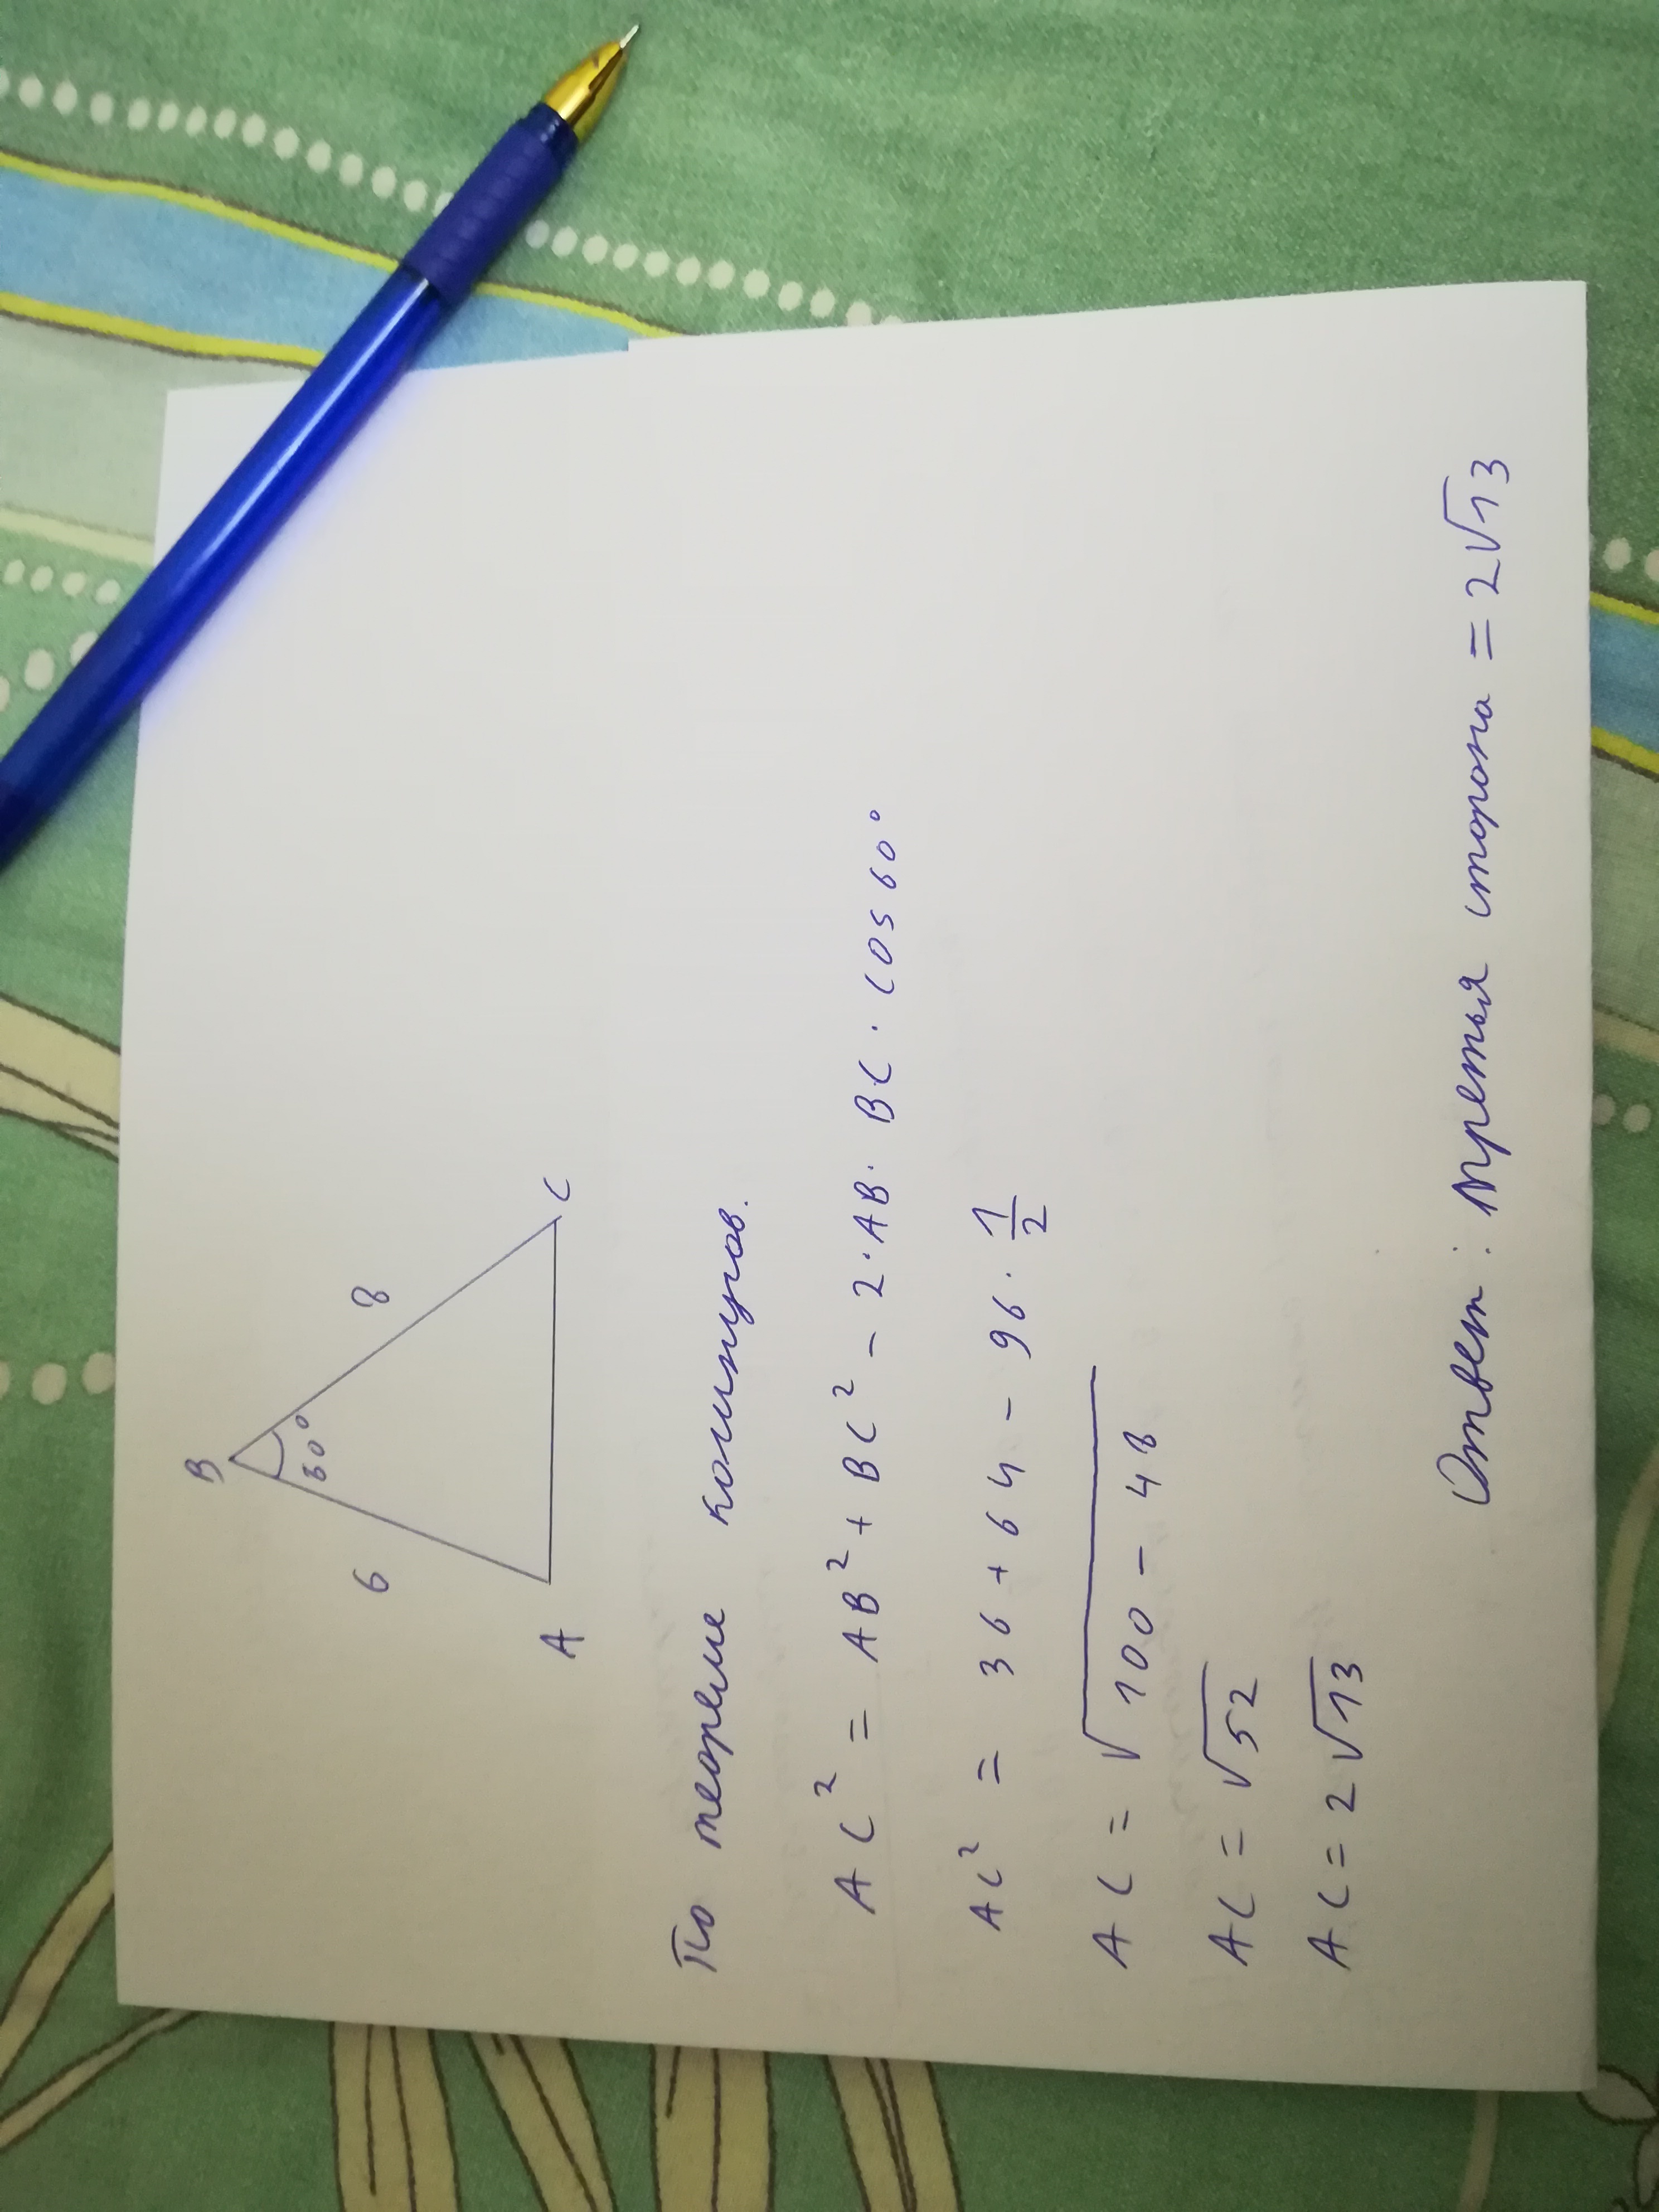 B
6
8
60°
A
C
По теореме косинусов.
AC² = AB² + BC² - 2·AB·BC·cos 60°
AC² = 36 + 64 - 96 · 1/2
AC = √100 - 48
AC = √52
AC = 2√13
Ответ: третья сторона = 2√13